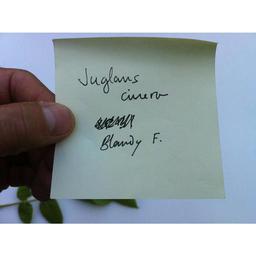 Juglans
cinerea
Blandy F.